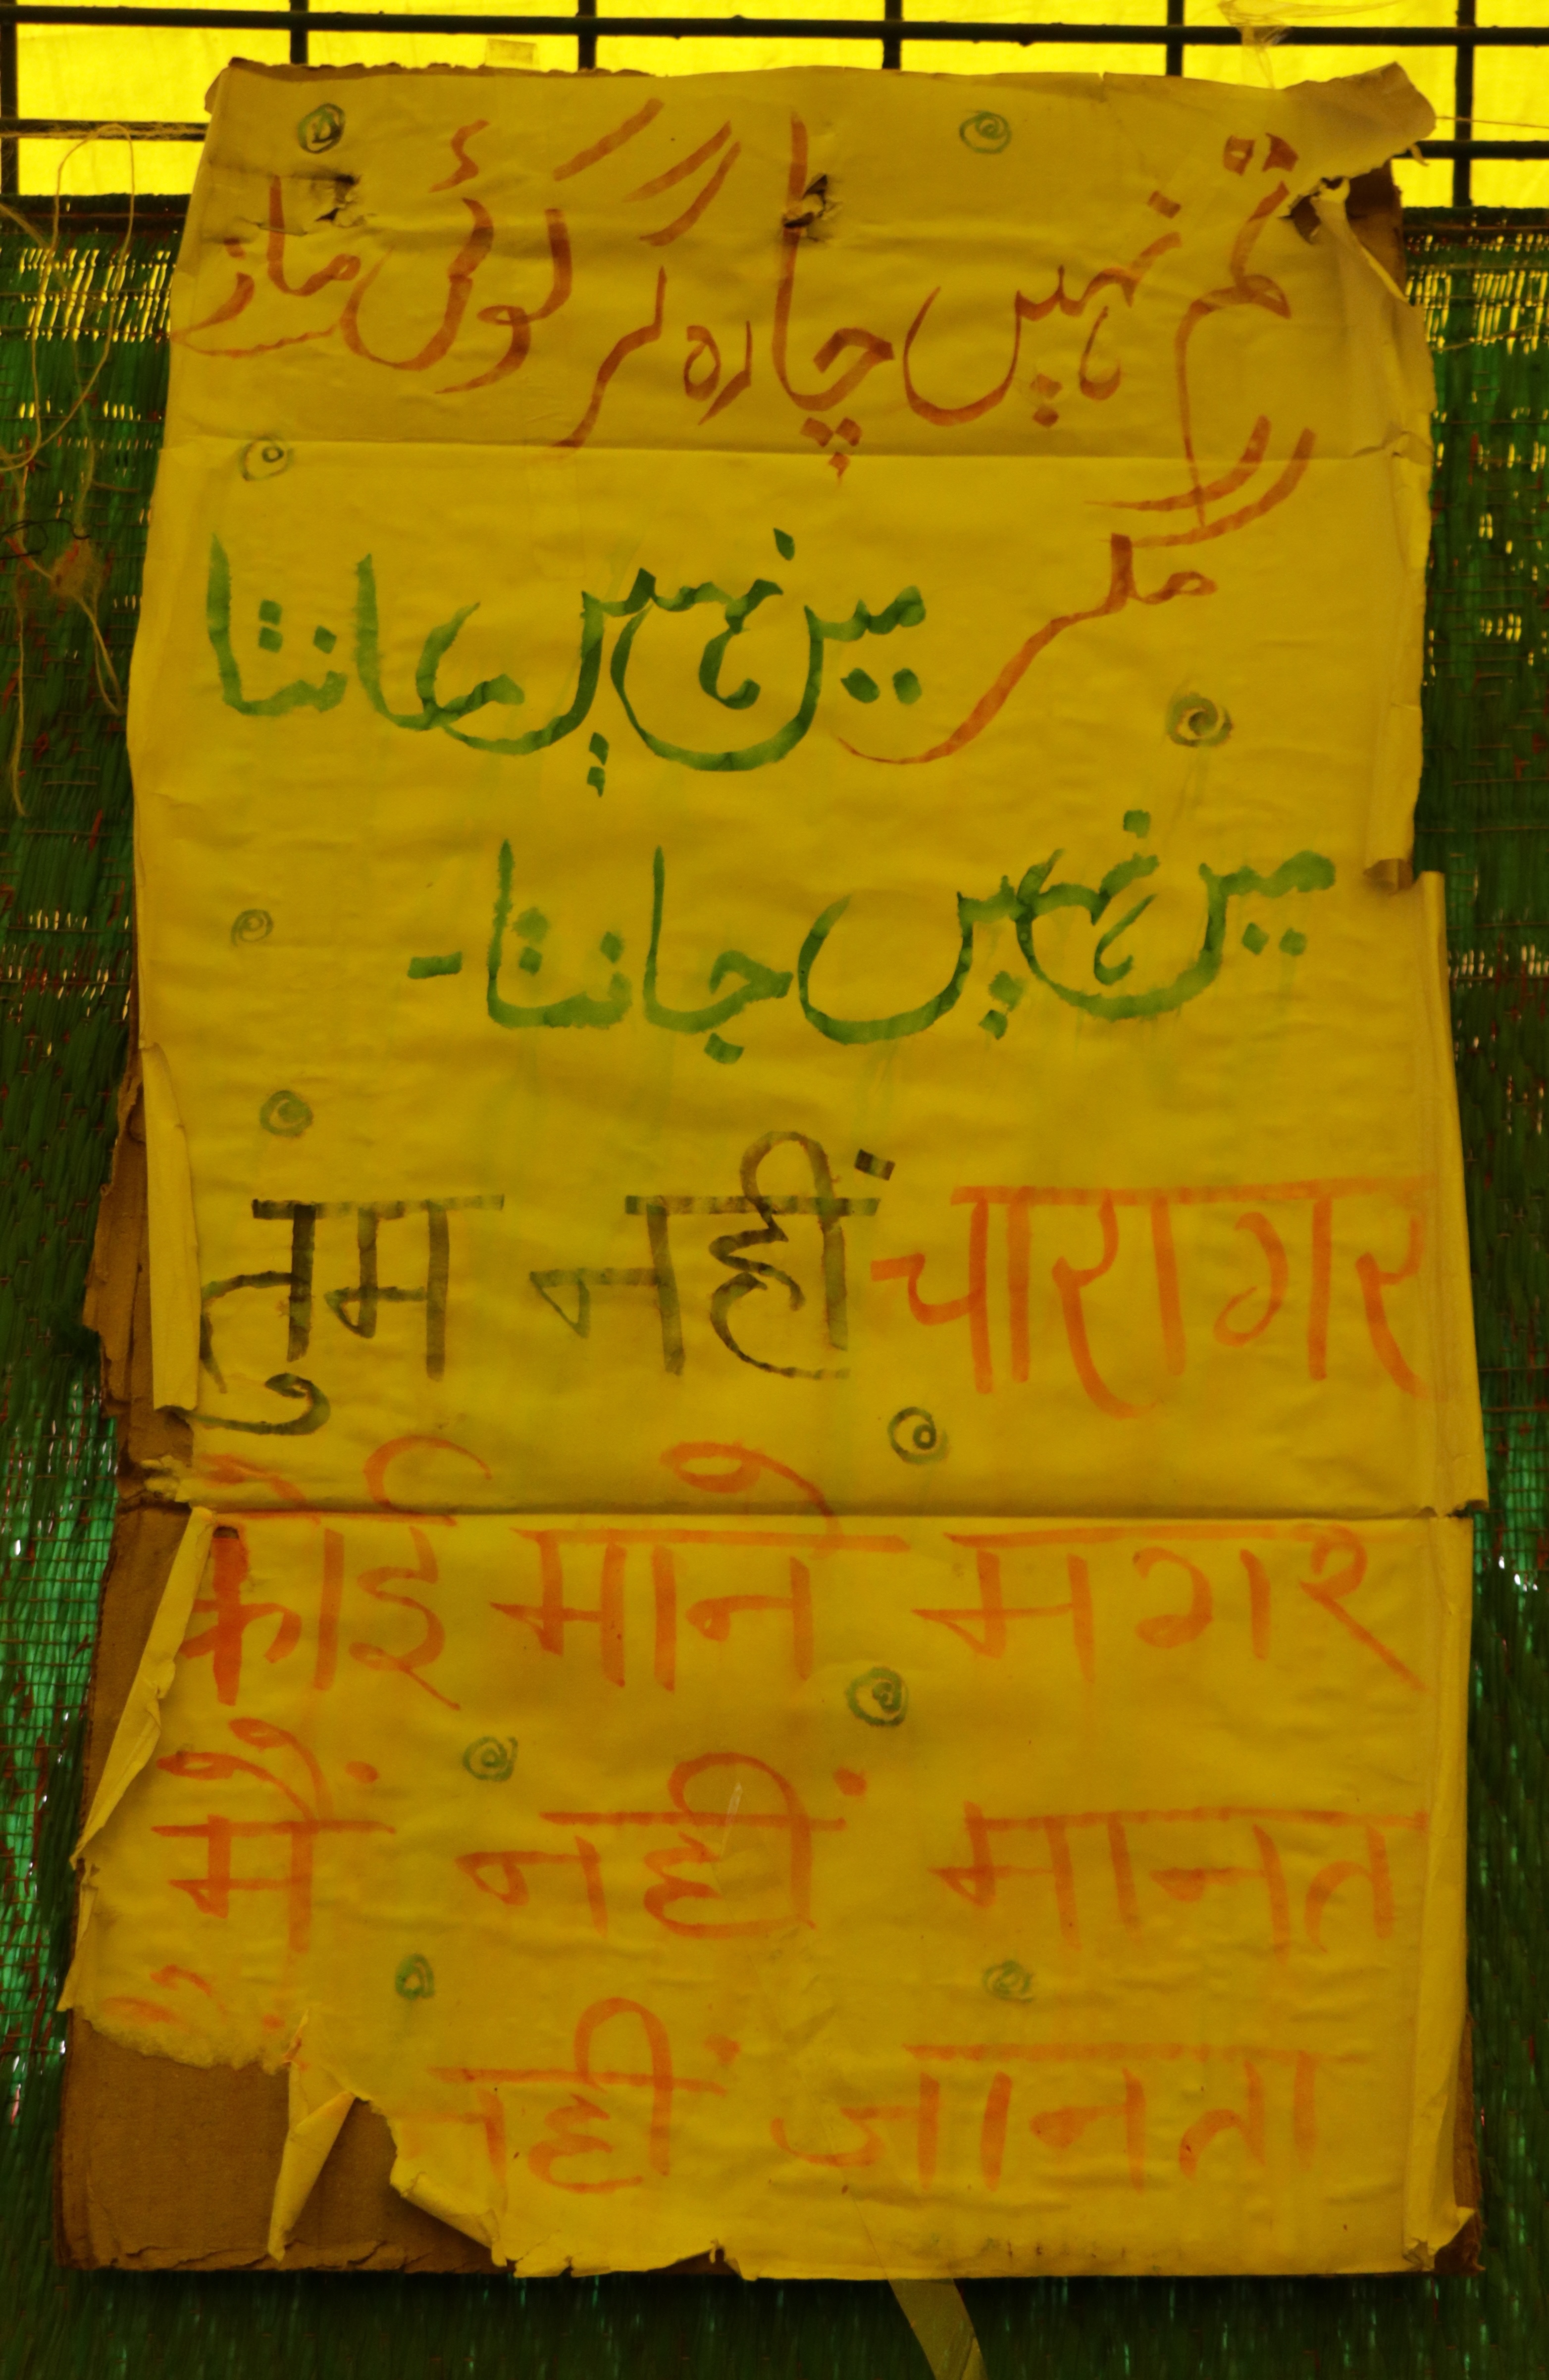 تم نہیں چارہ گر کوئی مانے
مگر میں نہیں مانتا
میں نہیں جانتا۔
तुम नहीं चारागर
कोई माने मगर
मैं नहीं मानत
मैं नहीं जानता